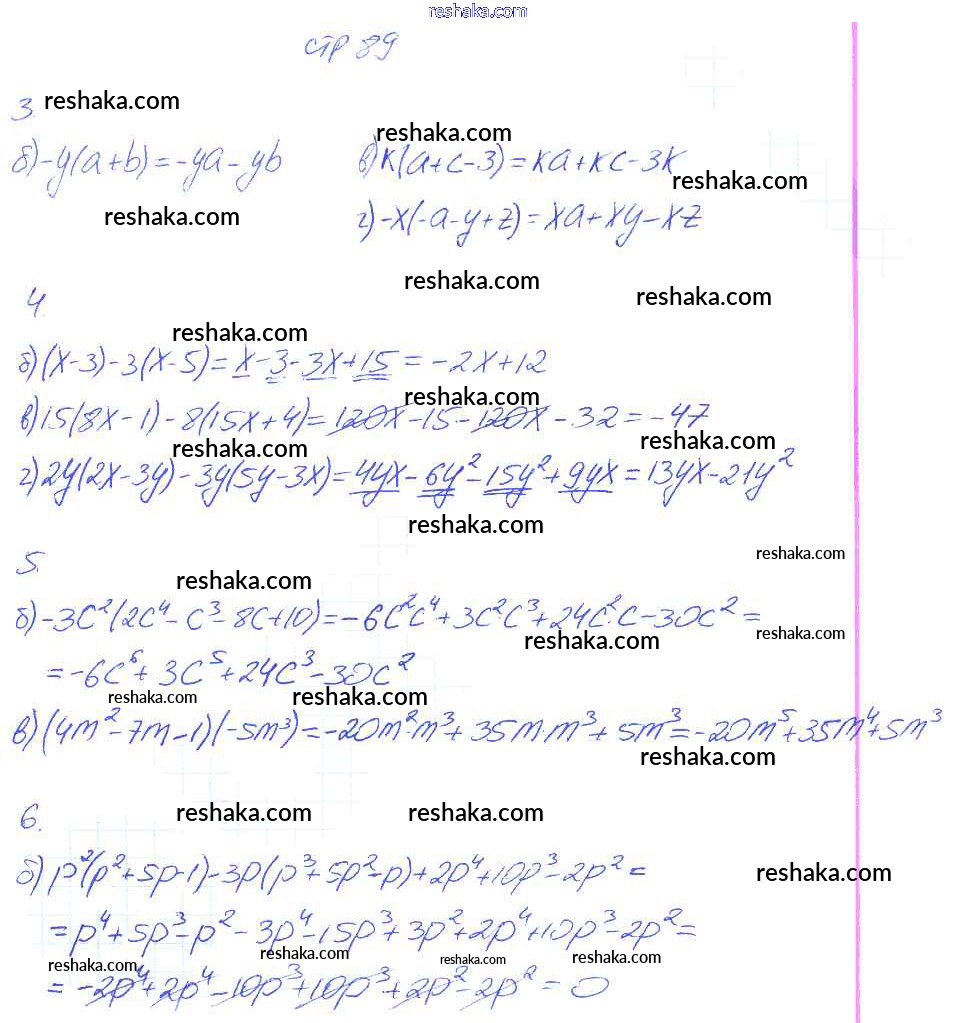 reshaka.com
стр 89
3. reshaka.com
reshaka.com
б) -y(a+b) = -ya - yb в) k(a+c-3) = ka+kc-3k
reshaka.com
reshaka.com г) -x(-a-y+z) = xa+xy-xz
reshaka.com
4. reshaka.com
reshaka.com
б) (x-3)-3(x-5) = x-3-3x+15 = -2x+12
reshaka.com
в) 15(8x-1)-8(15x+4) = 120x-15-120x-32 = -47
reshaka.com reshaka.com
г) 2y(2x-3y)-3y(5y-3x) = 4yx-6y²-15y²+9yx = 13yx-21y²
reshaka.com
5. reshaka.com
reshaka.com
б) -3c²(2c⁴-c³-8c+10) = -6c²c⁴+3c²c³+24c²·c-30c² =
reshaka.com reshaka.com
= -6c⁶+3c⁵+24c³-30c²
reshaka.com reshaka.com
в) (4m²-7m-1)(-5m³) = -20m²·m³+35m·m³+5m³ = -20m⁵+35m⁴+5m³
reshaka.com
6. reshaka.com reshaka.com
б) p²(p²+5p-1)-3p(p³+5p²-p)+2p⁴+10p³-2p² =
reshaka.com
= p⁴+5p³-p²-3p⁴-15p³+3p²+2p⁴+10p³-2p² =
reshaka.com reshaka.com reshaka.com reshaka.com
= -2p⁴+2p⁴-10p³+10p³+2p²-2p² = 0